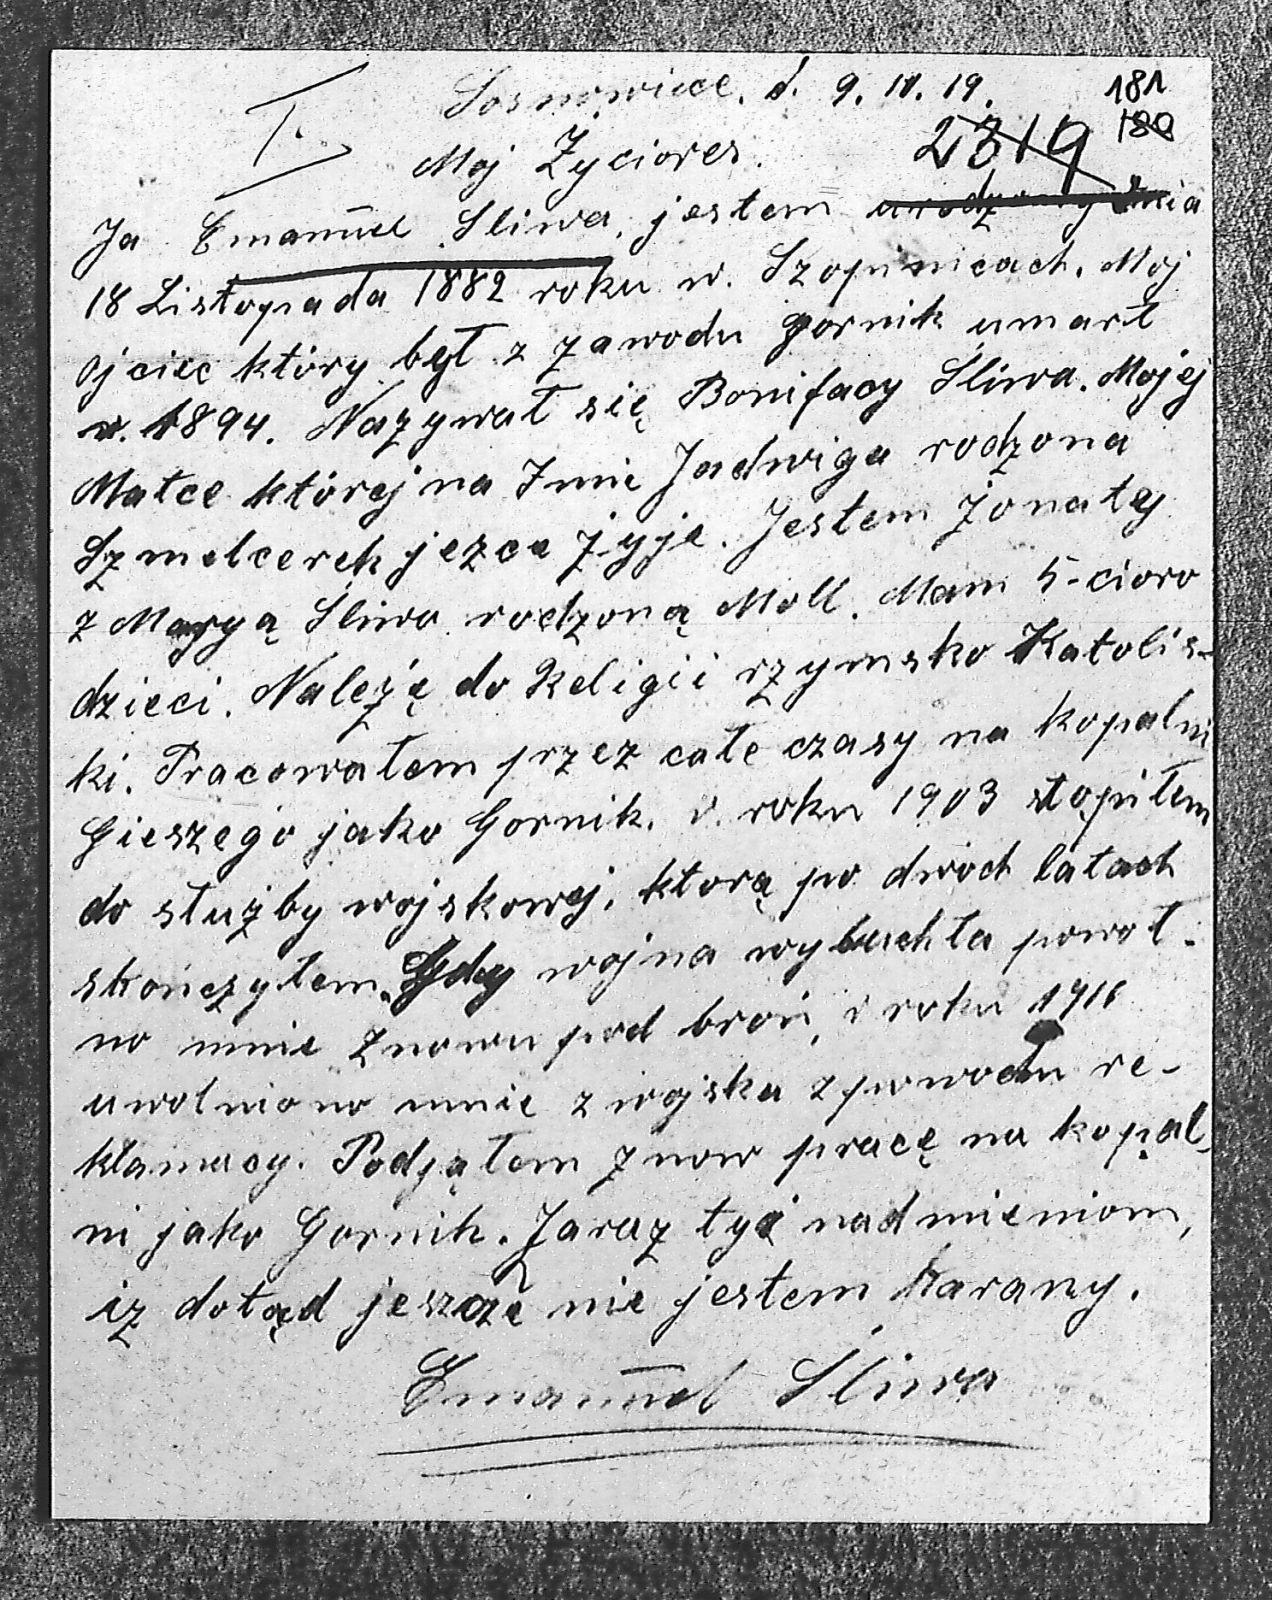 I.
Sosnowiece. d. 9. 11. 19.
181
180
2319
Moj Życiores.
Ja Emanuel Sliwa, jestem urodzony dnia
18 Listopada 1882 roku w. Szopinicach. Moj
Ojciec który był z zawodu gornik umarł
w. 1894. Nazywał się Bonifacy Śliwa. Mojej
Matce której na Imie Jadwiga rodzona
Szmelcerek jezce żyje. Jestem żonatej
z Maryą Śliwa rodzoną Moll. Mam 5-cioro
dzieci. Należę do Religii rzymsko Katolis-
ki. Pracowałem przez całe czasy na kopalni
Gieszego jako Gornik. v. roku 1903 stąpiłem
do służby wojskowej, ktorą po dwoch latach
skończyłem. Gdy wojna wybuchła powoł-
no mnie Znowu pod broń, v roku 1916
uwolniono mnie z wojska z powodu re-
klamacy. Podjąłem znow pracę na kopal-
ni jako Gornik. Zaraz tyż nadmieniom,
iz dotąd jeszcze nie jestem karany.
Emanuel Śliwa